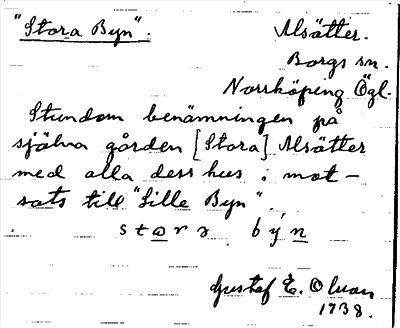 "Stora Byn". Alsätter.
Borgs sn.
Norrköping Ögl.
Stundom benämningen på
själva gården [Stora] Alsätter
med alla dess hus i mot-
sats till "Lille Byn".
stɷrɘ býn
Gustaf E.
1738.